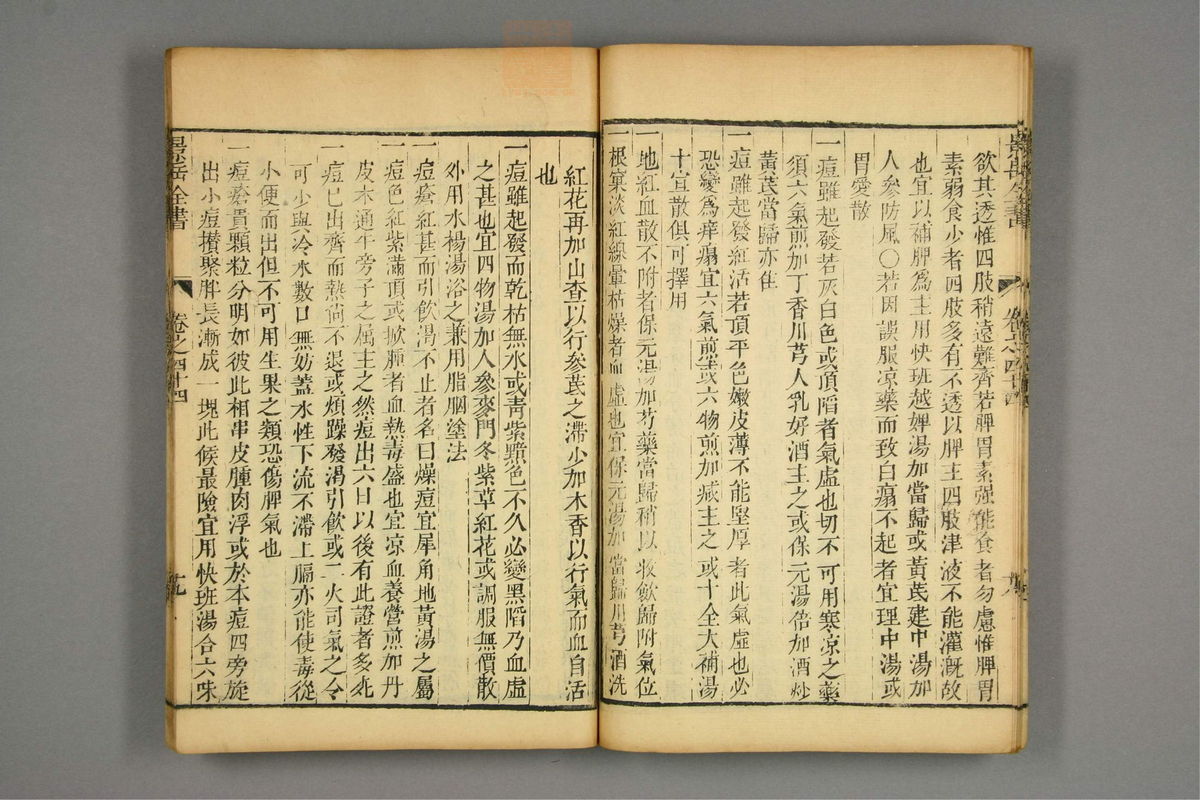 景岳全書
卷之四十四
欲其透惟四肢稍遠難齊若脾胃素强能食者勿慮惟脾胃
素弱食少者四肢多有不透以脾主四肢津液不能灌溉故
也宜以補脾爲主用快班越婢湯加當歸或黃芪建中湯加
人參防風○若因誤服凉藥而致白瘺不起者宜理中湯或
胃愛散
一痘雖起發若灰白色或頂陷者氣虛也切不可用寒凉之藥
須六氣煎加丁香川芎人乳好酒主之或保元湯倍加酒炒
黃芪當歸亦佳
一痘雖起發紅活若頂平色嫩皮薄不能堅厚者此氣虛也必
恐變爲痒塌宜六氣煎或六物煎加减主之或十全大補湯
十宣散俱可擇用
一地紅血散不附者保元湯加芍藥當歸稍以收歛歸附氣位
一根窠淡紅線暈枯燥者血虛也宜保元湯加當歸川芎酒洗
紅花再加山查以行參芪之滯少加木香以行氣而血自活
也
一痘雖起發而乾枯無水或靑紫黯色不久必變黑陷乃血虛
之甚也宜四物湯加人參麥門冬紫草紅花或調服無價散
外用水楊湯浴之兼用脂胭塗法
一痘瘡紅甚而引飲渴不止者名曰燥痘宜犀角地黃湯之屬
一痘色紅紫滿頂或掀腫者血熱毒盛也宜凉血養營煎加丹
皮木通牛旁子之屬主之然痘出六日以後有此證者多死
一痘已出齊而熱尙不退或煩躁發渴引飮或二火司氣之令
可少與冷水數口無妨蓋水性下流不滯上膈亦能使毒從
小便而出但不可用生果之類恐傷脾氣也
一痘瘡貴顆粒分明如彼此相串皮腫肉浮或於本痘四旁旋
出小痘攢聚胖長漸成一塊此候最險宜用快班湯合六味
景岳全書
卷之四十四
九